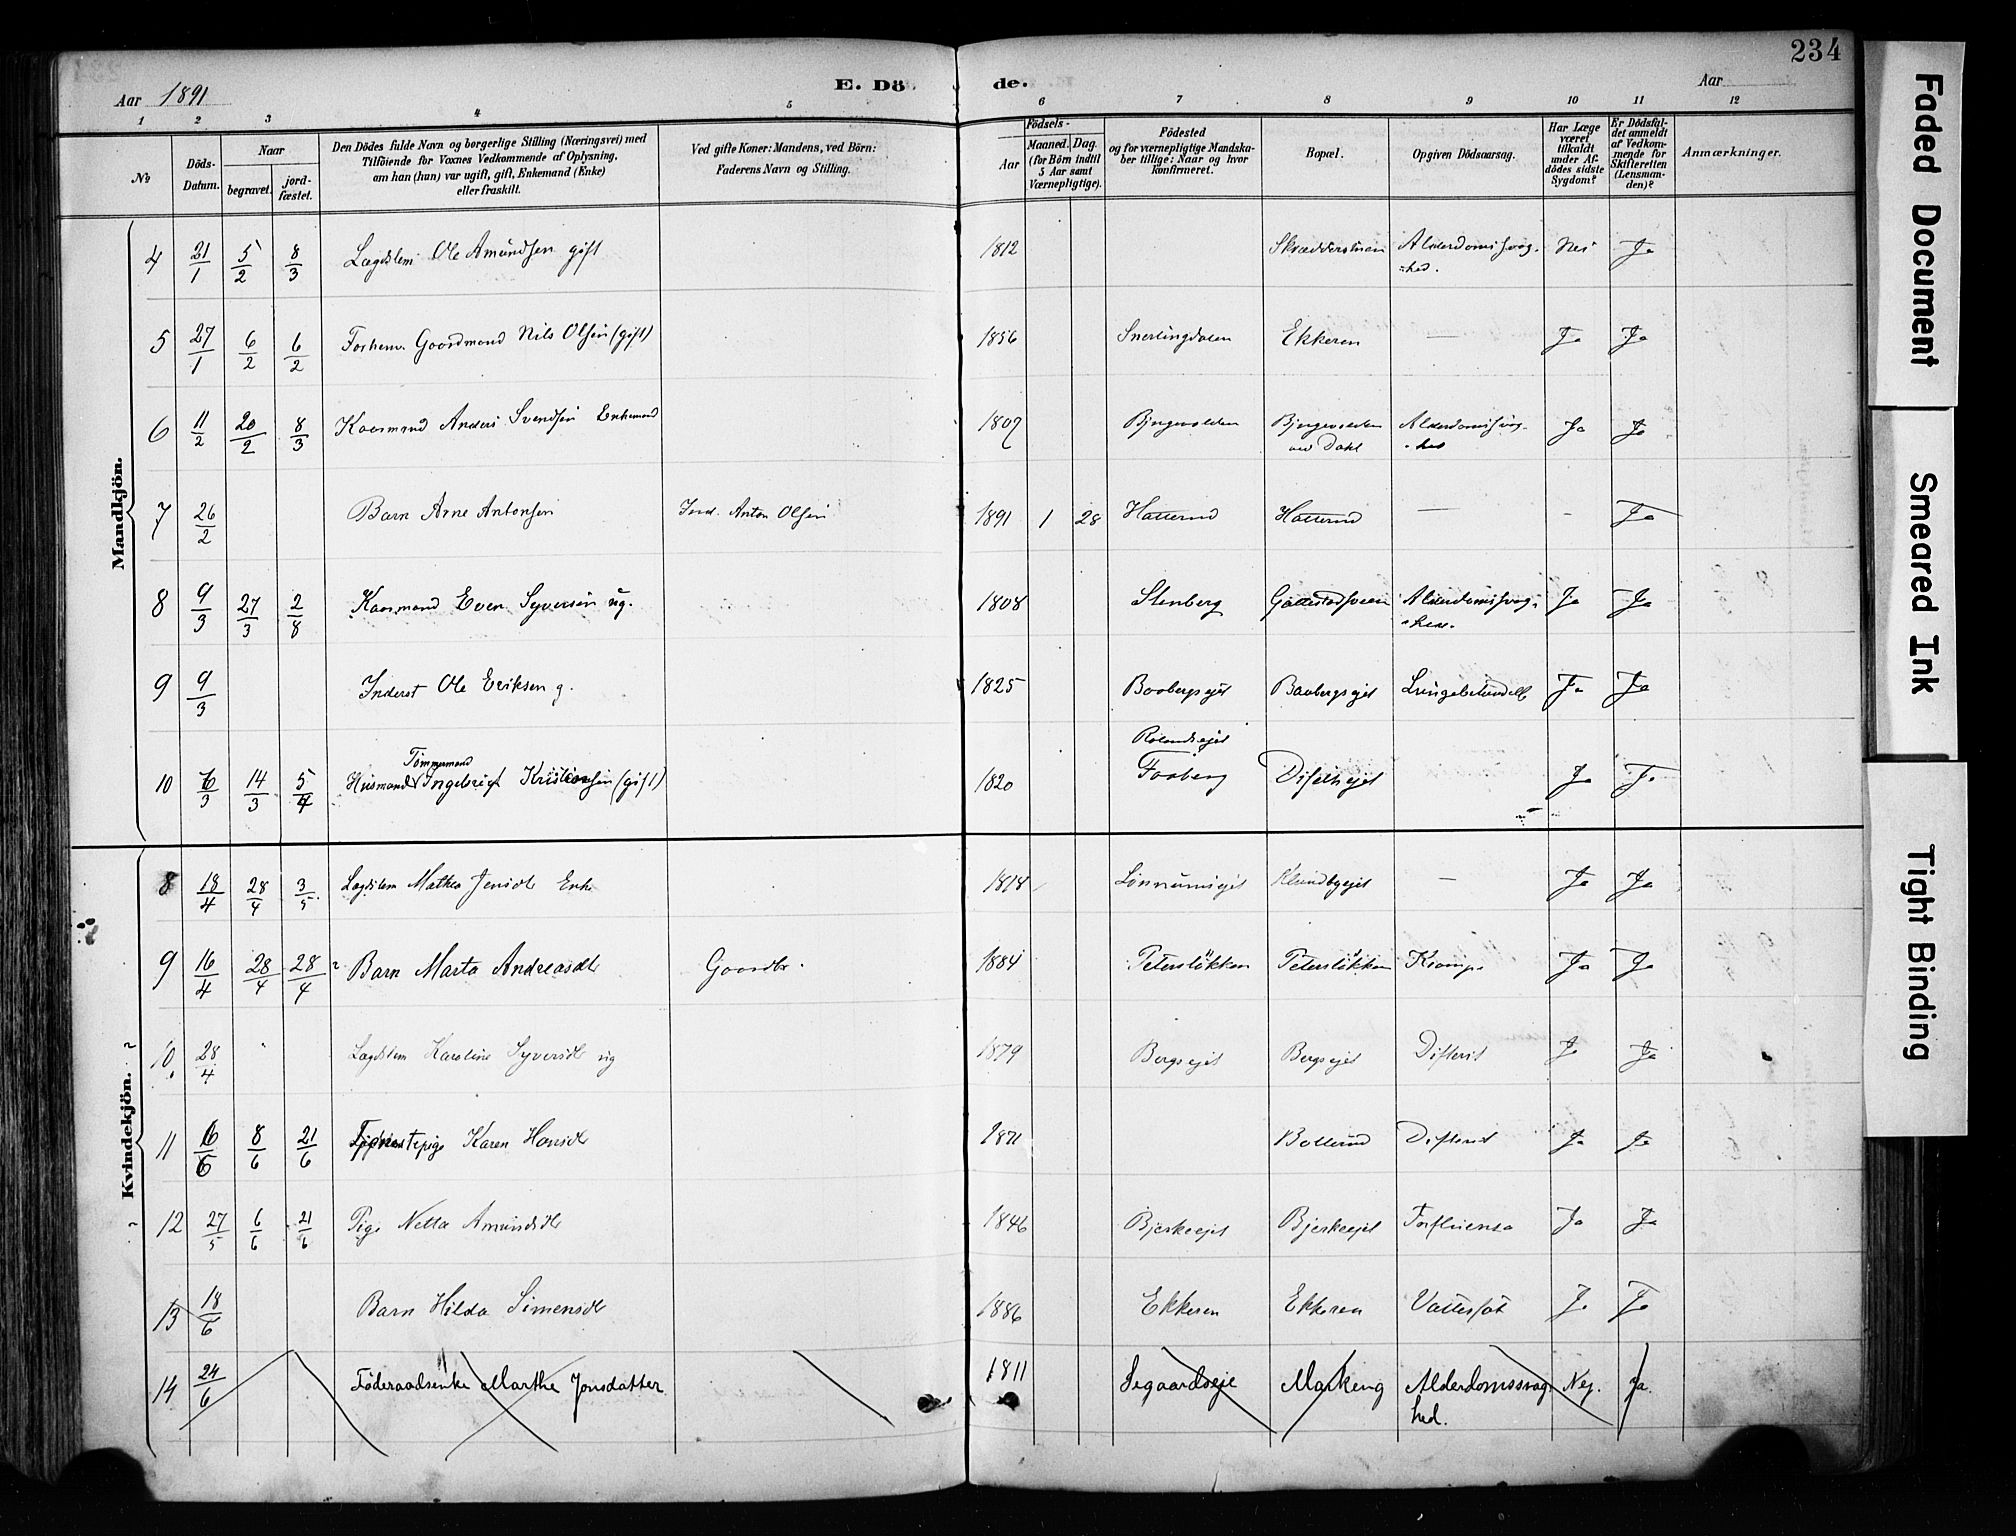 234
Aar 1891
E. Dö
de.
Aar
1 2 3 4 5 6 7 8 9 10 11 12
No
Döds-Datum.
Naar
begravet.
jord-fæstet.
Den Dödes fulde Navn og borgerlige Stilling (Næringsvei) med
Tilföiende for Voxnes Vedkommende af Oplysning,
om han (hun) var ugift, gift, Enkemand (Enke)
eller fraskilt.
Ved gifte Koner: Mandens, ved Börn:
Faderens Navn og Stilling.
Födsels-
Aar
Maaned. Dag.
(for Börn indtil
5 Aar samt
Værnepligtige).
Födested
og for værnepligtige Mandska-
ber tillige: Naar og hvor
konfirmeret.
Bopæl.
Opgiven Dödsaarsag.
Har Læge
været
tilkaldt
under Af-
dödes sidste
Sygdom?
Er Dödsfal-
det anmeldt
af Vedkom-
mende for
Skifteretten
(Lensman-
den)?
Anmærkninger.
Mandkjön.
4 21/1 5/2 8/3 Lægdslem Ole Amundsen gift 1812 Alderdomssvag-hed. Nei Ja
5 27/1 6/2 6/2 Gaardmand Nils Olsen (gift) 1856 Snertingdalen Ekkeren — Ja Ja
6 11/2 20/2 8/3 Kaarmand Anders Svendsen Enkemand 1807 Alderdomssvag-hed Ja Ja
7 26/2 Barn Arne Antonsen Anton Olsen 1891 1 28 Hatterud Hatterud — - Ja
8 9/3 27/3 2/8 Kaarmand Even Syversen ug. 1808 Stenberg Alderdomssvag-hed. Ja Ja
9 9/3 Inderst Ole Eriksen g. 1825 Baabergsejet Baabergsejet Lungebetændelse Ja Ja
10 6/3 14/3 5/4 Husmand Tømmermand Ingebrigt Kristiansen (gift) 1820 Faaberg Ja Ja
Kvindekjön.
8 18/4 28/4 3/5 Lægdslem Mathea Jensdtr Enke 1818 Lønnumsejet Klundbyejet — Ja Ja
9 16/4 28/4 28/4 ? Barn Marta Andreasdtr Gaardbr. 1884 Petersløkken Petersløkken Krampe Ja Ja
10 28/4 Lægdslem Karoline Syversdtr ug 1879 Bergsejet Bergsejet Difterit Ja Ja
11 6/6 8/6 21/6 Tjenestepige Karen Hansdtr 1871 Bollerud Difterit Ja Ja
12 27/5 6/6 21/6 Pige Netta Amundsdtr 1846 Bjerkeejet Bjerkeejet Ja Ja
13 18/6 Barn Hilda Simensdtr 1886 Ekkeren Ekkeren Vattersot Ja Ja
14 24/6 Føderaadsenke Marthe Jonsdatter 1811 Segaardseje Markeng Alderdomssvag-hed. Nej. Ja.
Faded Document
Smeared Ink
Tight Binding